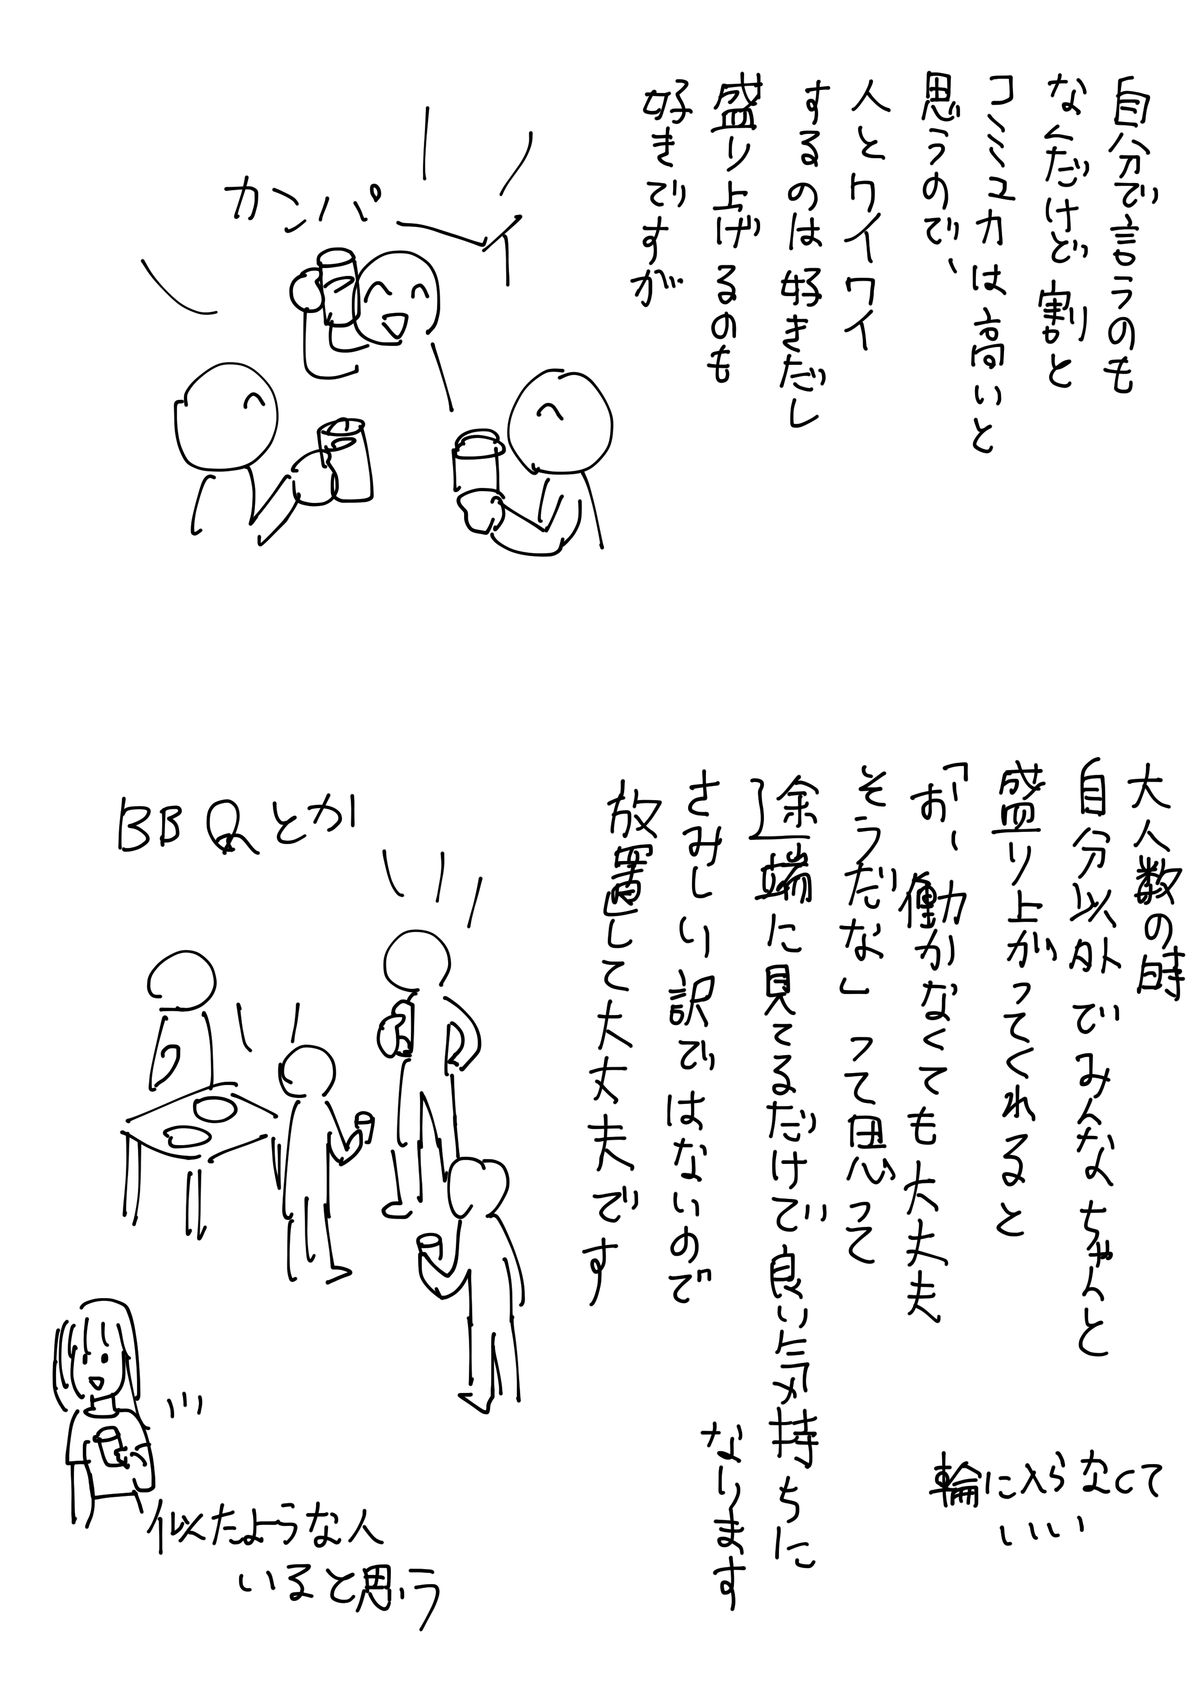 自分で言うのも
なんだけど割と
コミュ力は高いと
思うので、
人とワイワイ
するのは好きだし
盛り上げるのも
好きですが
カンパーイ
大人数の時
自分以外でみんなちゃんと
盛り上がってくれると
「お、働かなくても大丈夫
そうだな」って思って
途端に見てるだけで良い気持ちに
なります
さみしい訳ではないので
放置して大丈夫です
輪に入らなくて
いい
BBQとか
似たような人
いると思う